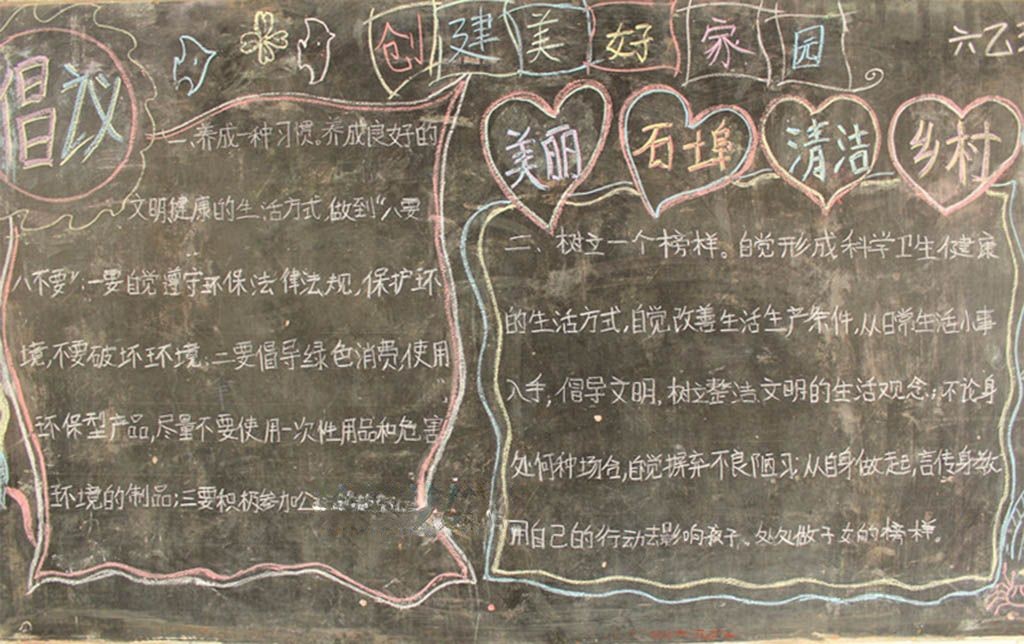 创建美好家园
六乙
倡议
一、养成一种习惯。养成良好的
文明健康的生活方式,做到"八要
八不要":一要自觉遵守环保法律法规,保护环
境,不要破坏环境;二要倡导绿色消费,使用
环保型产品,尽量不要使用一次性用品和危害
环境的制品;三要积极参加公
美丽 石埠 清洁 乡村
二、树立一个榜样。自觉形成科学卫生健康
的生活方式,自觉改善生活生产条件,从日常生活小事
入手,倡导文明,树立整洁文明的生活观念;不论身
处何种场合,自觉摒弃不良陋习;从自身做起,言传身教
用自己的行动去影响孩子、处处做子女的榜样。